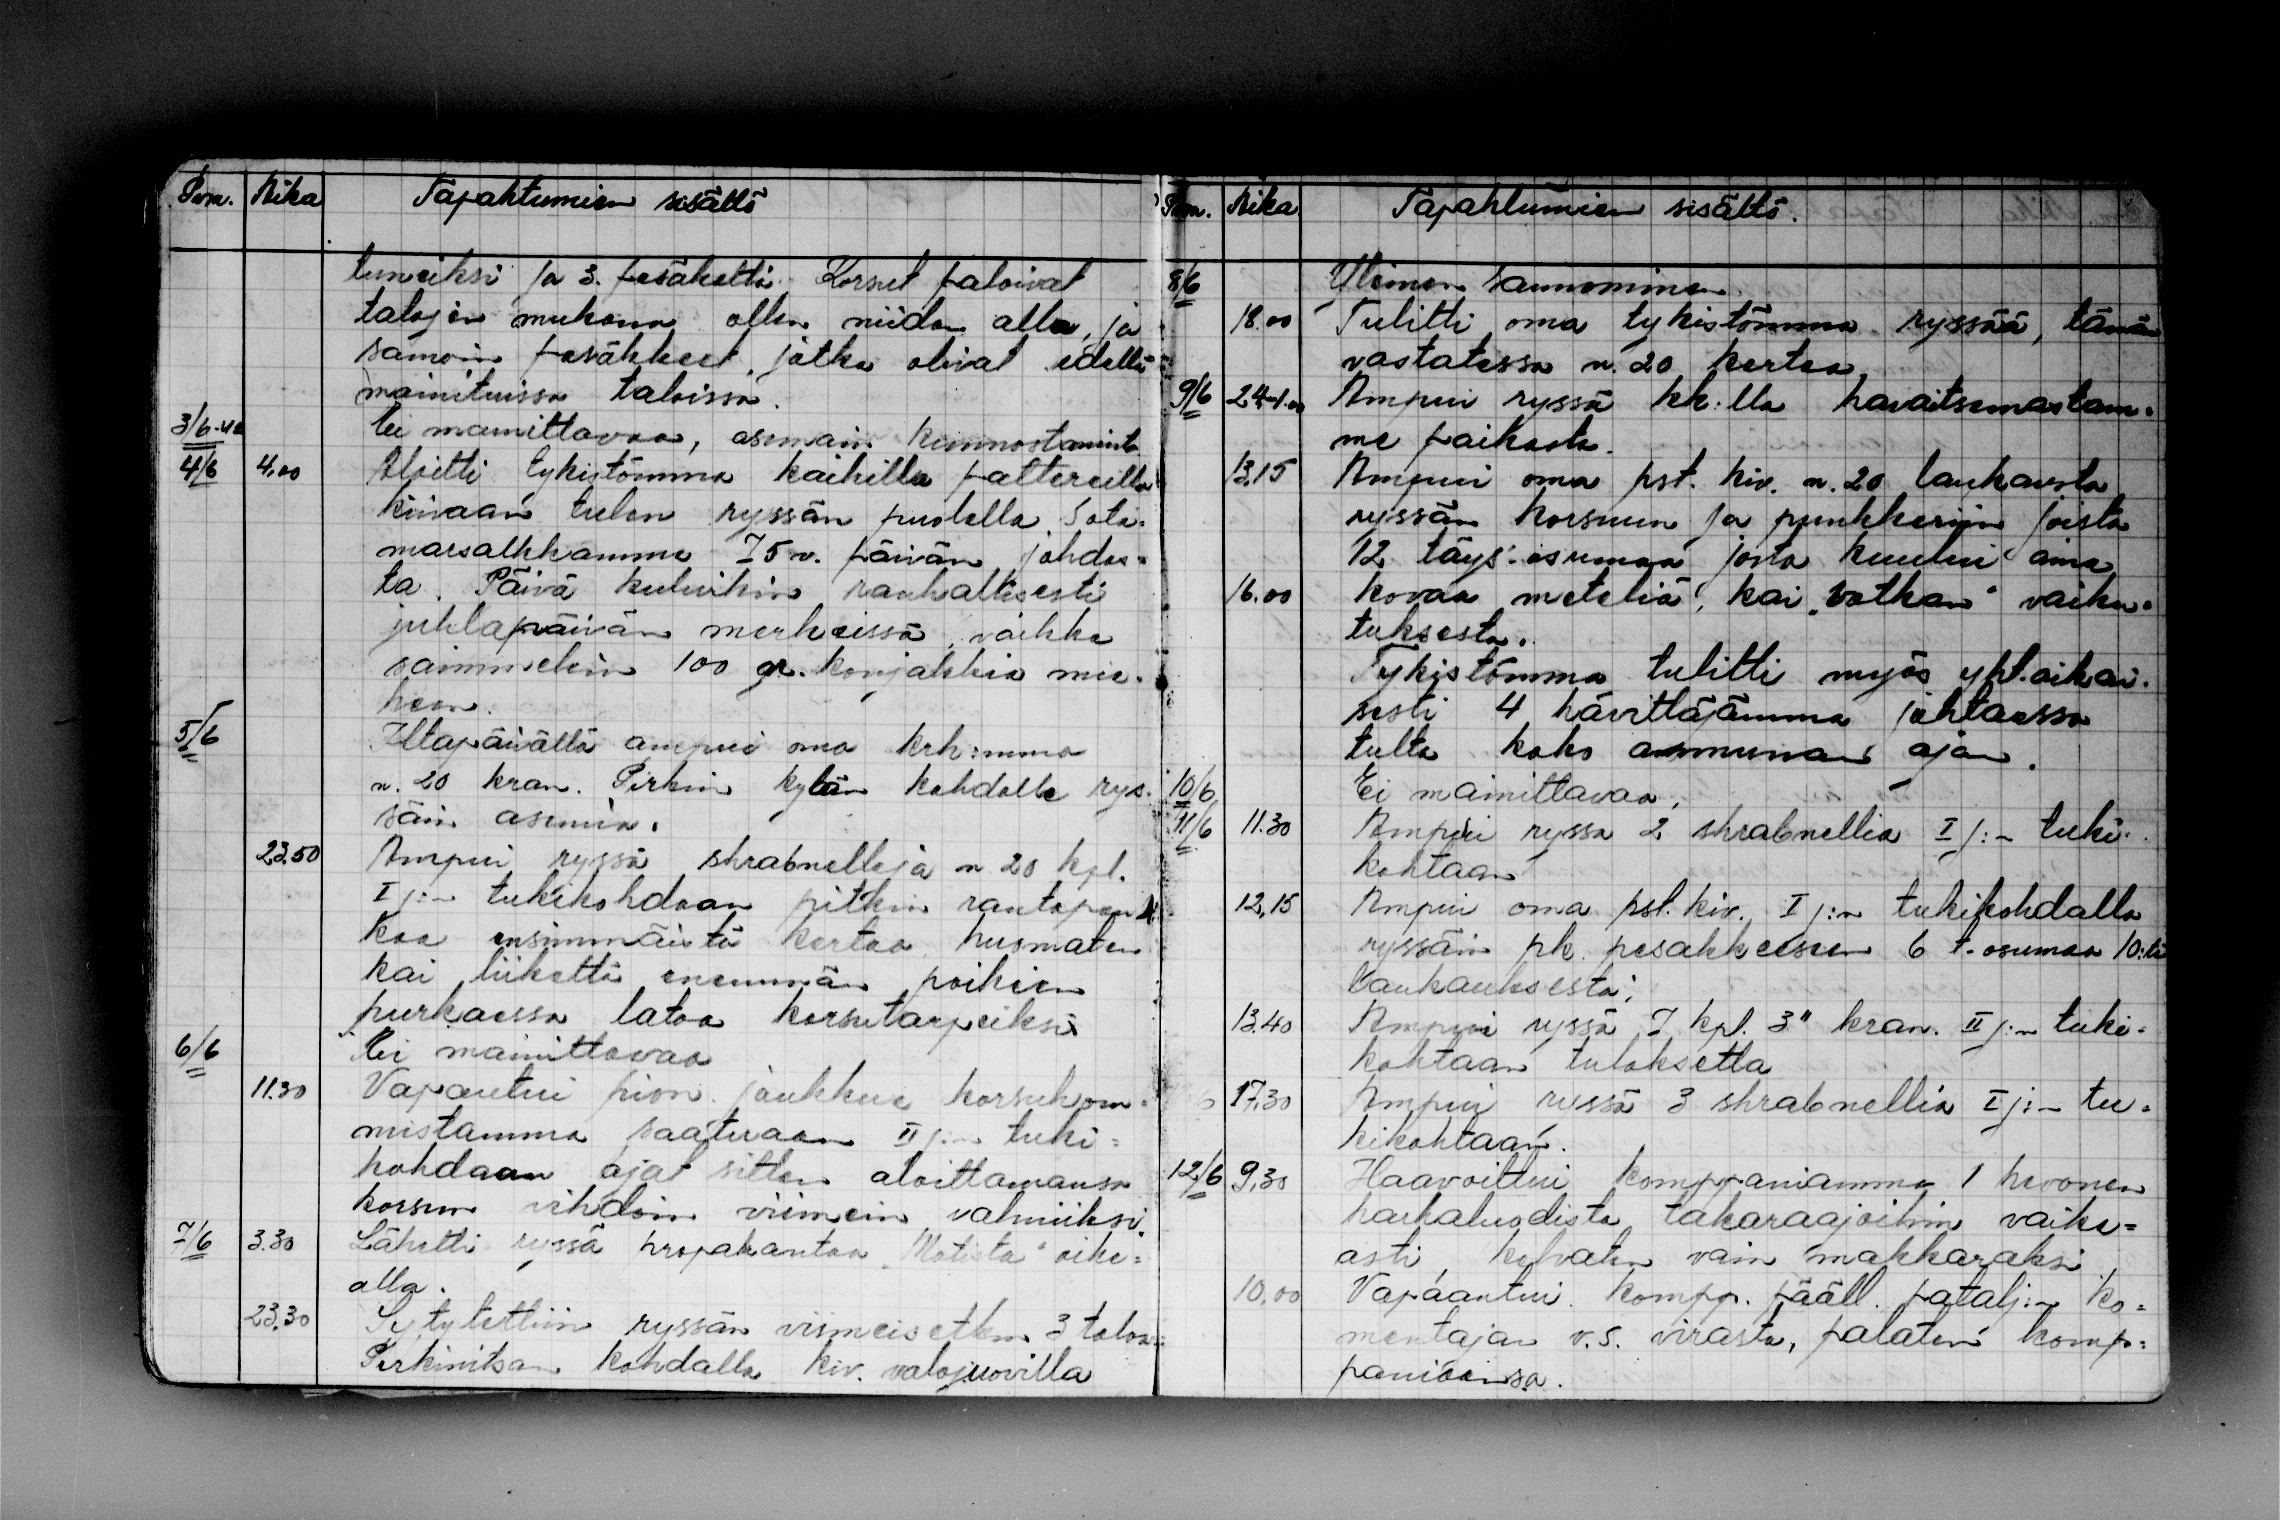 Pvm. Aika Tapahtumien sisältö
tuneiksi ja 3. pesäkettä. Korsut paloivat
talojen mukana ollen niiden alla, ja
samoin pesäkkeet, jotka olivat edellä
mainituissa taloissa.
3/6-42 Ei mainittavaa, asemain kunnostaminta
4/6 4.00 Aloitti tykistömme kaikilla pattereilla
kiivaan tulen ryssän puolella Sota-
marsalkkamme 75 v. päivän johdos-
ta. Päivä kuluikin rauhallisesti
juhlapäivän merkeissä, vaikka
saimmekin 100 gr. konjakkia mie-
heen.
5/6 Iltapäivällä ampui oma krh:mme
n. 20 kran. Pirkin kylän kohdalla rys-
sän asemia.
23.50 Ampui ryssä shrabnelleja n 20 kpl.
I j:n tukikohdaan pitkin rantapen
kaa ensimmäistä kertaa huomaten
kai liikettä enemmän poikien
purkaessa latoa korsutarpeiksi
6/6 Ei mainittavaa
11.30 Vapautui pion. joukkue korsuhom-
mistamme saatuaan II j:n tuki=
kohdaan ajat sitten aloittamansa
korsun vihdoin viimein valmiiksi.
7/6 3.30 Lähetti ryssä propakantaa "Motista" oike=
alla.
23.30 Sytytettiin ryssän viimeisetkin 3 taloa
Perkinitsan kohdalla kiv. valojuovilla
Pvm. Aika Tapahtumien sisältö.
8/6 Yleinen saunominen
18.00 Tulitti oma tykistömme ryssää, tämän
vastatessa n. 20 kertaa
9/6 24-1.00 Ampui ryssä kk:lla havaitsemastam-
me paikasta.
13,15 Ampui oma pst. kiv. n. 20 laukausta
ryssän korsuun ja punkkeriin joista
12 täys-osumaa josta kuului aina
16.00 kovaa meteliä, kai "votkan" vaiku-
tuksesta.
Tykistömme tulitti myös yht.aikai-
sesti 4 hävittäjämme johtaessa
tulta koko ammunan ajan.
10/6 Ei mainittavaa.
11/6 11.30 Ampui ryssä 2 shrabnellia I j:n tuki-
kohtaan
12,15 Ampui oma pst. kiv. I j:n tukikohdalla
ryssän pk. pesäkkeeseen 6 t-osumaa 10:tä
laukauksesta.
13.40 Ampui ryssä 7 kpl. 3" kran. II j:n tuki-
kohtaan tuloksetta
17,30 Ampui ryssä 3 shrabnellia I j:n tu-
kikohtaan.
12/6 9,30 Haavoittui komppaniamme 1 hevonen
harhaluodista takaraajoihin vaike=
asti, kelvaten vain makkaraksi
10,00 Vapaantui kompp. pääll. patalj:n ko=
mentajan v.s. virasta, palaten komp=
paniaansa.